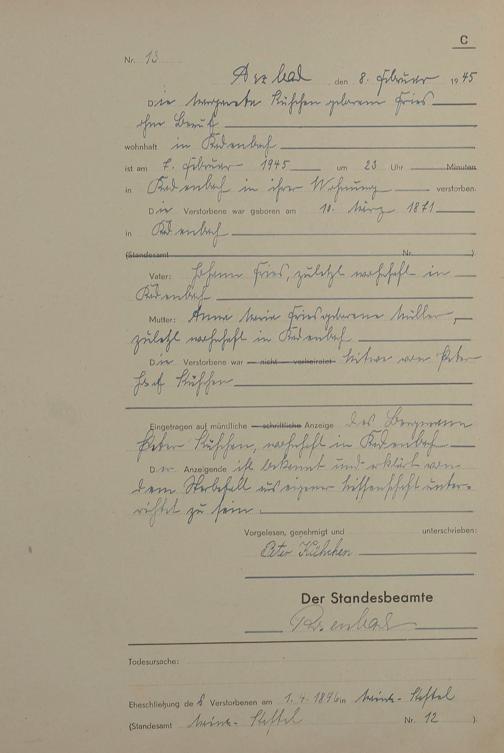 C
Nr. 13
Arzbach den 8. Februar 1945
Die Margareta Kühchen geborene Fries
ohne Beruf
wohnhaft in Kadenbach
ist am 7. Februar 1945 um 23 Uhr Minuten
in Kadenbach in ihrer Wohnung verstorben.
Die Verstorbene war geboren am 10. März 1871
in Kadenbach
(Standesamt Nr. )
Vater: Johann Fries, zuletzt wohnhaft in
Kadenbach
Mutter: Anna Maria Fries geborene Müller,
zuletzt wohnhaft in Kadenbach
Die Verstorbene war nicht verheiratet Witwe von Peter
Josef Kühchen
Eingetragen auf mündliche schriftliche Anzeige des Bergmann
Peter Kühchen, wohnhaft in Kadenbach
Der Anzeigende ist bekannt und erklärt von
dem Sterbefall aus eigener Wissenschaft unter-
richtet zu sein.
Vorgelesen, genehmigt und unterschrieben:
Peter Kühchen
Der Standesbeamte
Todesursache:
Eheschließung de Verstorbenen am 1.4.1896 in Mainz-Kastel
(Standesamt Mainz-Kastel Nr. 12 ).